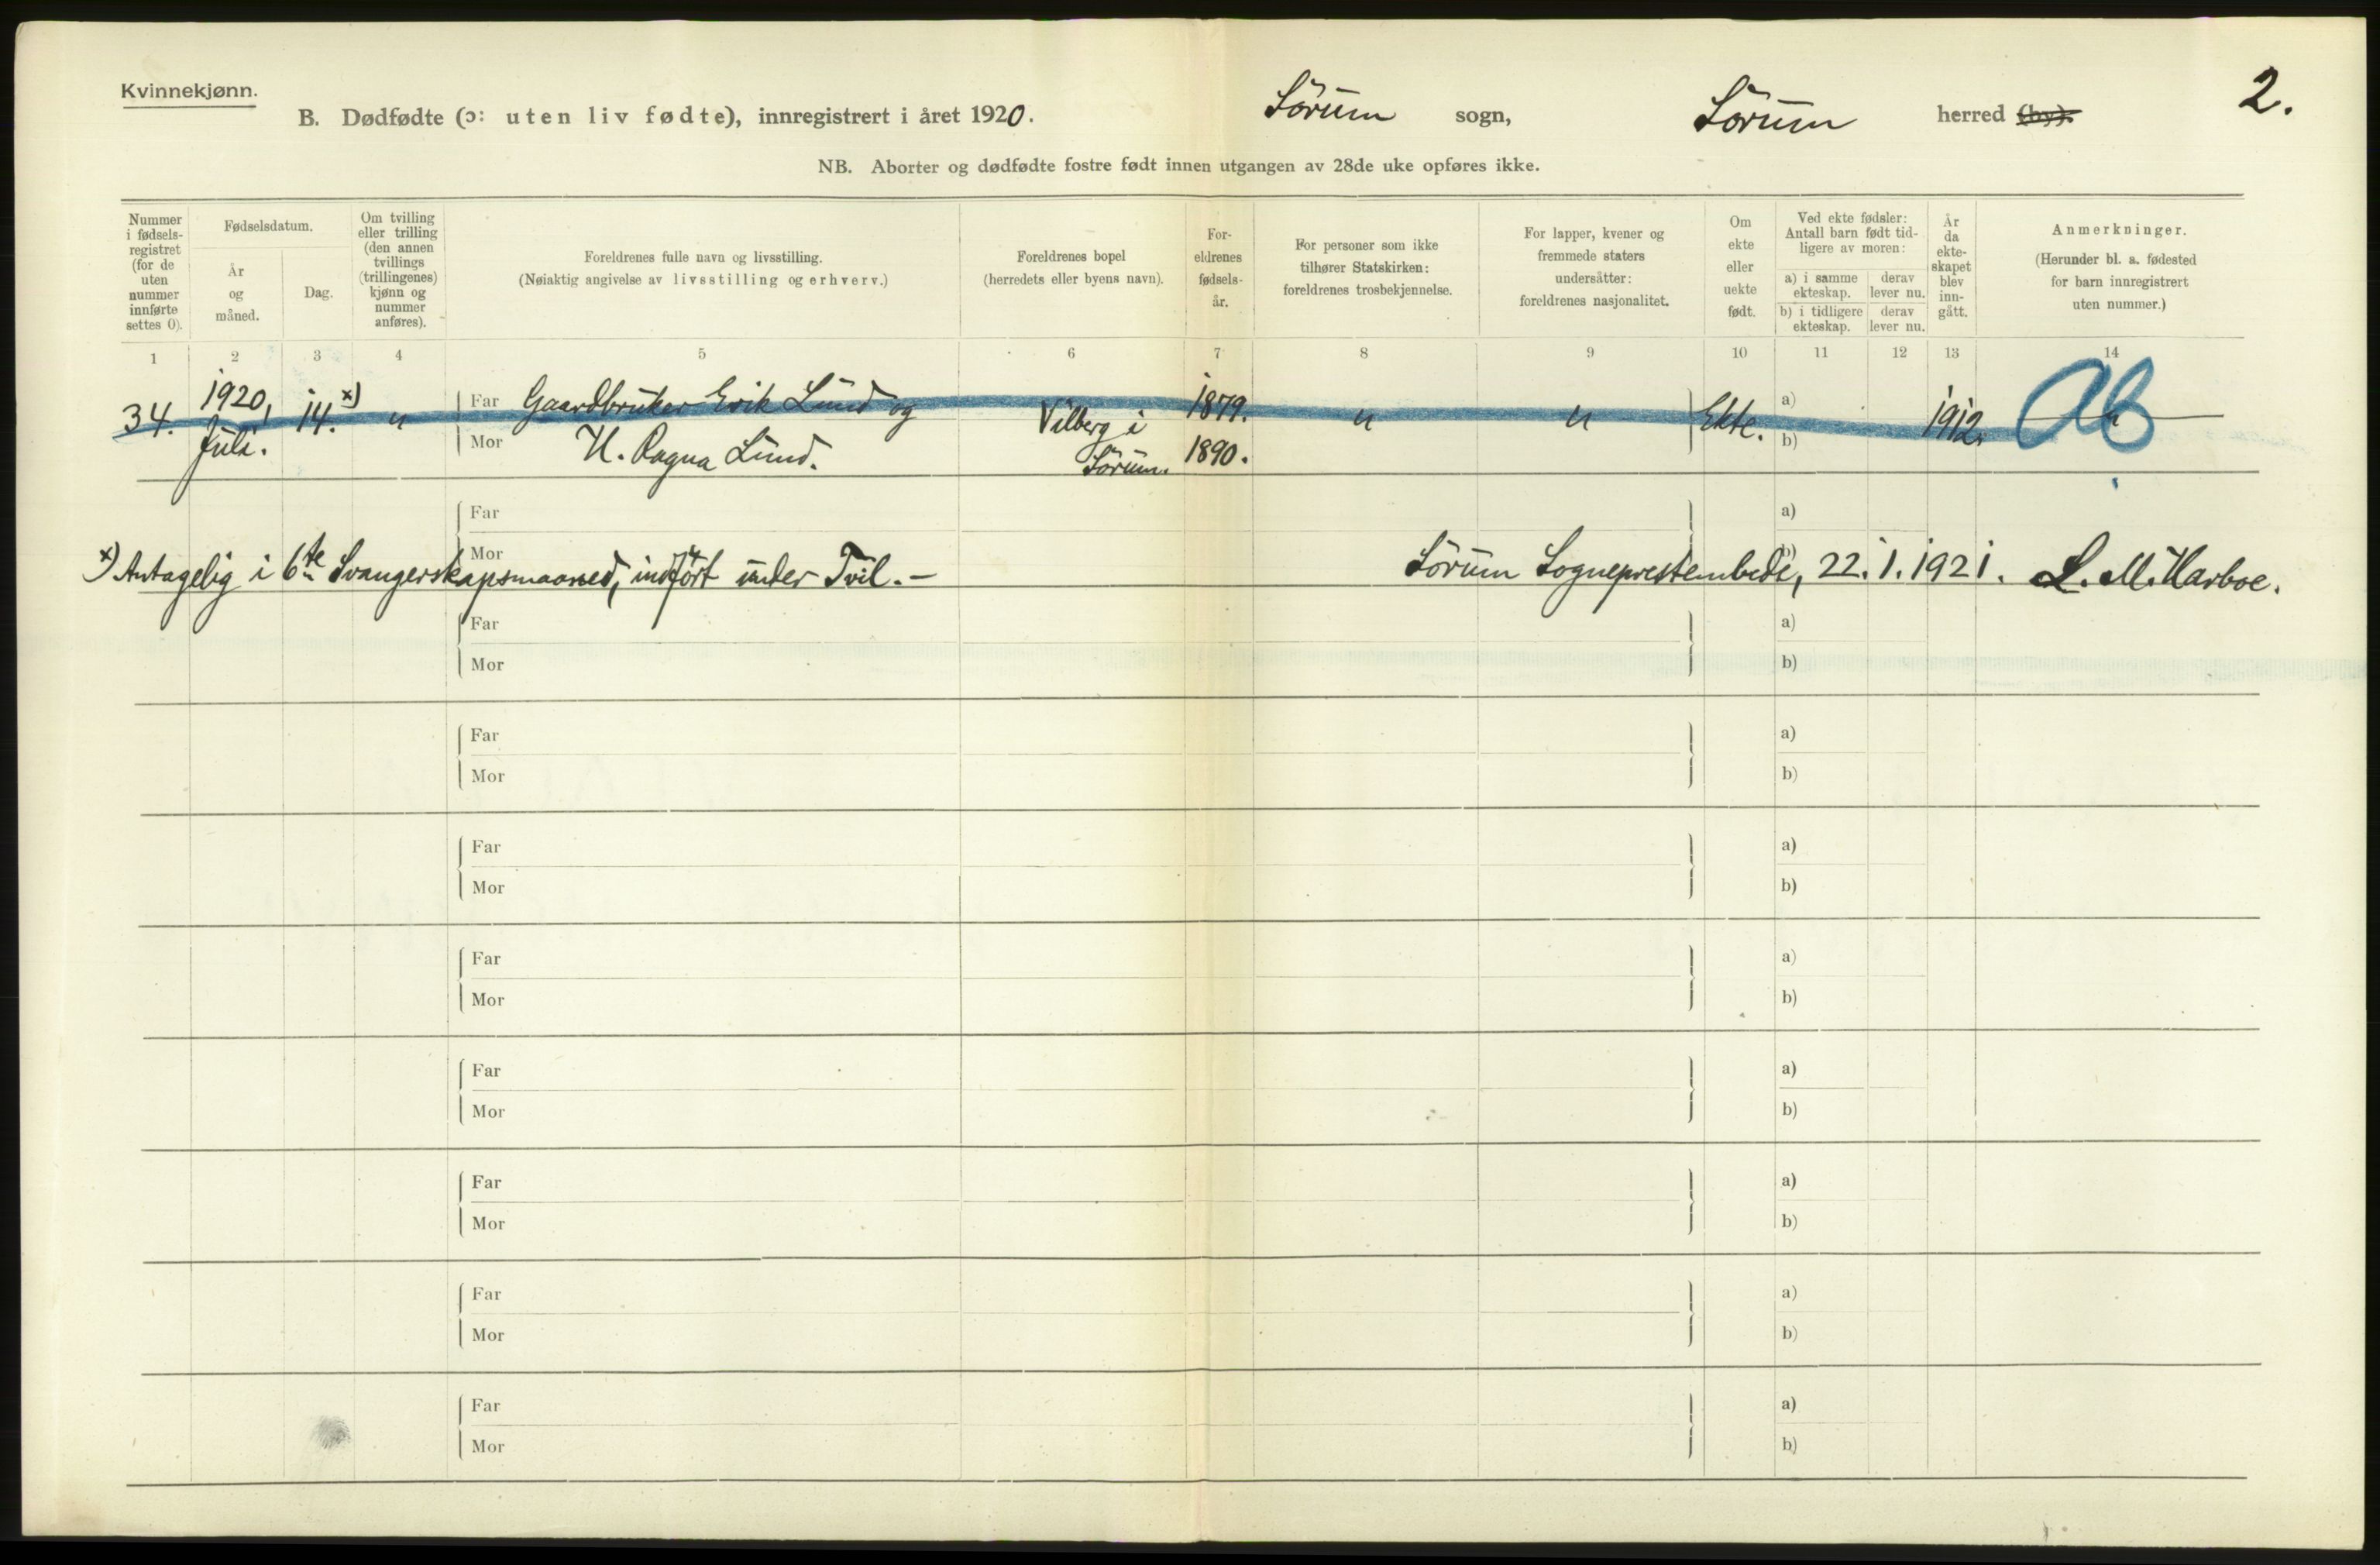 Kvinnekjønn.
2.
B. Dødfødte (ɔ: uten liv fødte), innregistrert i året 1920. Sörum sogn, Sörum herred (by).
NB. Aborter og dødfødte fostre født innen utgangen av 28de uke opføres ikke.
Nummer
i fødsels-
registret
(for de
uten
nummer
innførte
settes 0).
Fødselsdatum.
År
og
måned.
Dag.
Om tvilling
eller trilling
(den annen
tvillings
(trillingenes)
kjønn og
nummer
anføres).
Foreldrenes fulle navn og livsstilling.
(Nøiaktig angivelse av livsstilling og erhverv.)
Foreldrenes bopel
(herredets eller byens navn).
For-
eldrenes
fødsels-
år.
For personer som ikke
tilhører Statskirken:
foreldrenes trosbekjennelse.
For lapper, kvener og
fremmede staters
undersåtter:
foreldrenes nasjonalitet.
Om
ekte
eller
uekte
født.
Ved ekte fødsler:
Antall barn født tid-
ligere av moren:
a) i samme
ekteskap.
derav
lever nu.
b) i tidligere
ekteskap.
derav
lever nu.
År
da
ekte-
skapet
blev
inn-
gått.
Anmerkninger.
(Herunder bl. a. fødested
for barn innregistrert
uten nummer.)
1 2 3 4 5 6 7 8 9 10 11 12 13 14
34. 1920, 14. x) " Far Gaardbruker Erik Lund og Vilberg i 1879. " " Ekte. a) 1912. " Ab
Juli. Mor H. Ragna Lund. Sörum. 1890. b)
Far a)
Mor b)
x) Antagelig i 6te Svangerskapsmaaned, indfört under Tvil. – Sörum Sogneprestembede, 22.1.1921. L. M. Harboe.
Far a)
Mor b)
Far a)
Mor b)
Far a)
Mor b)
Far a)
Mor b)
Far a)
Mor b)
Far a)
Mor b)
Far a)
Mor b)
Far a)
Mor b)